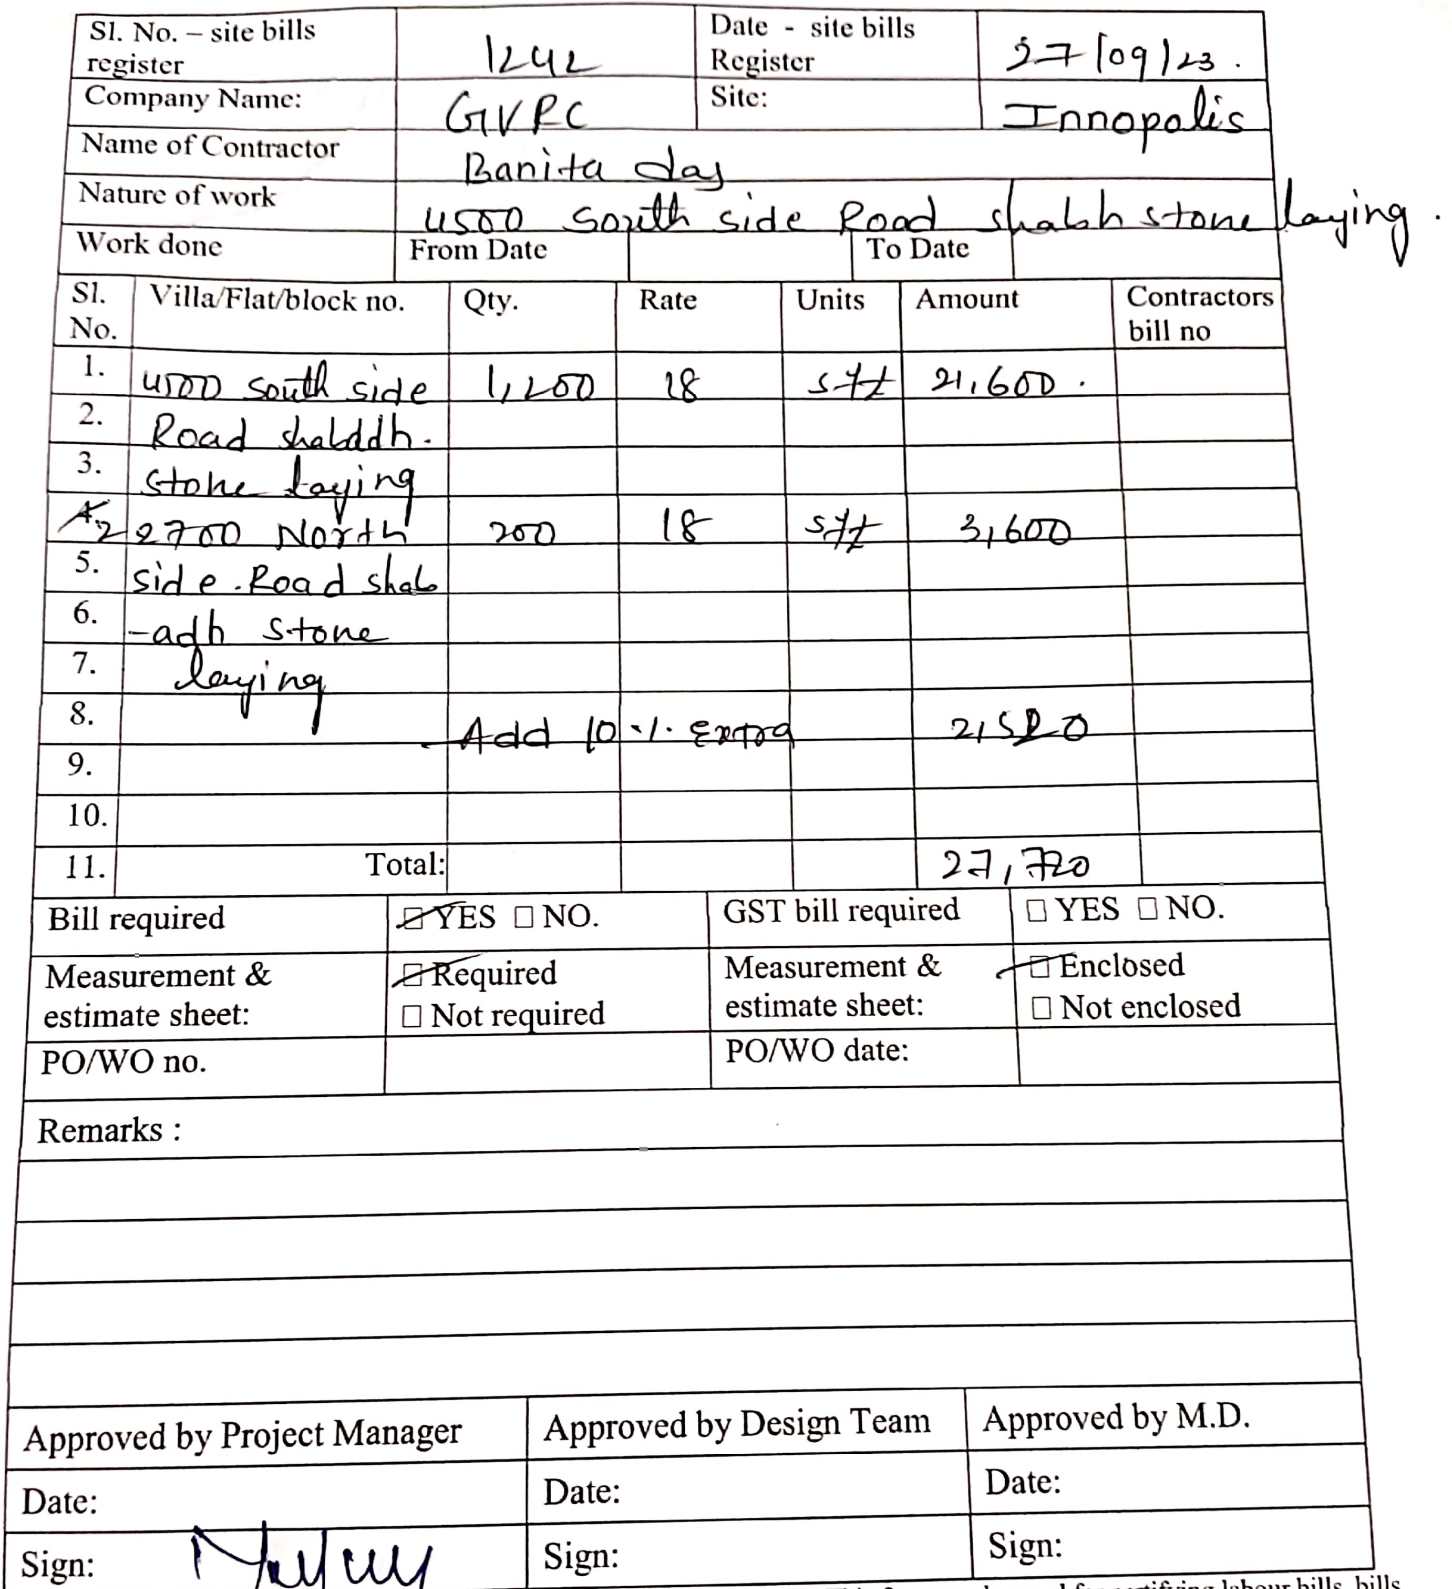 Sl. No. – site bills register 1242 Date - site bills Register 27/09/23.
Company Name: GVRC Site: Innopolis
Name of Contractor Banita das
Nature of work 4500 South side Road shabh stone laying.
Work done From Date To Date
Sl. No. Villa/Flat/block no. Qty. Rate Units Amount Contractors bill no
1. 4500 South side 1,200 18 sft 21,600.
2. Road shabddh.
3. stone laying
2 2700 North 200 18 sft 3,600
5. side. Road shab
6. -adh stone
7. laying
8. Add 10 % Extra 2,520
9.
10.
11. Total: 27,720
Bill required ☑ YES ☐ NO. GST bill required ☐ YES ☐ NO.
Measurement & estimate sheet: ☑ Required ☐ Not required Measurement & estimate sheet: ☑ Enclosed ☐ Not enclosed
PO/WO no. PO/WO date:
Remarks :
Approved by Project Manager Approved by Design Team Approved by M.D.
Date: Date: Date:
Sign: Sign: Sign:
labour bills, bills